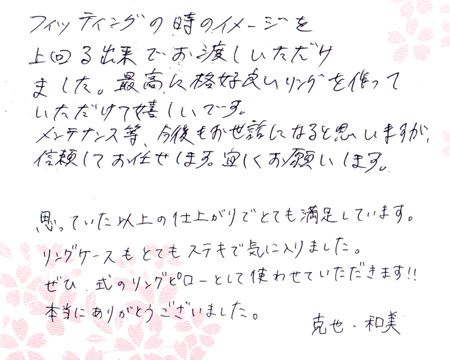 フィッティングの時のイメージを
上回る出来でお渡しいただけ
ました。最高に格好良いリングを作って
いただけて嬉しいです。
メンテナンス等、今後もお世話になると思いますが、
信頼してお任せします。宜しくお願いします。
思っていた以上の仕上がりでとても満足しています。
リングケースもとてもステキで気に入りました。
ぜひ 式のリングピローとして使わせていただきます!!
本当にありがとうございました。
克也・和美